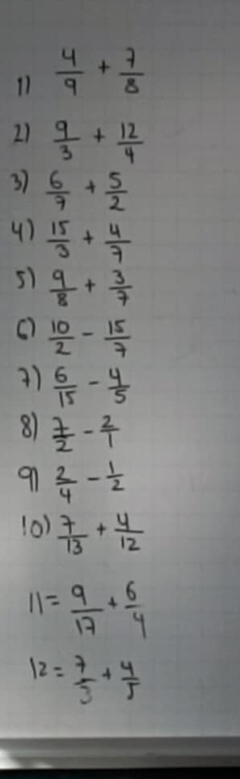 1) 4/9 + 7/8
2) 9/3 + 12/4
3) 6/7 + 5/2
4) 15/3 + 4/7
5) 9/8 + 3/7
6) 10/2 - 15/7
7) 6/15 - 4/5
8) 7/2 - 2/1
9) 2/4 - 1/2
10) 7/13 + 4/12
11 = 9/17 + 6/4
12 = 7/3 + 4/5